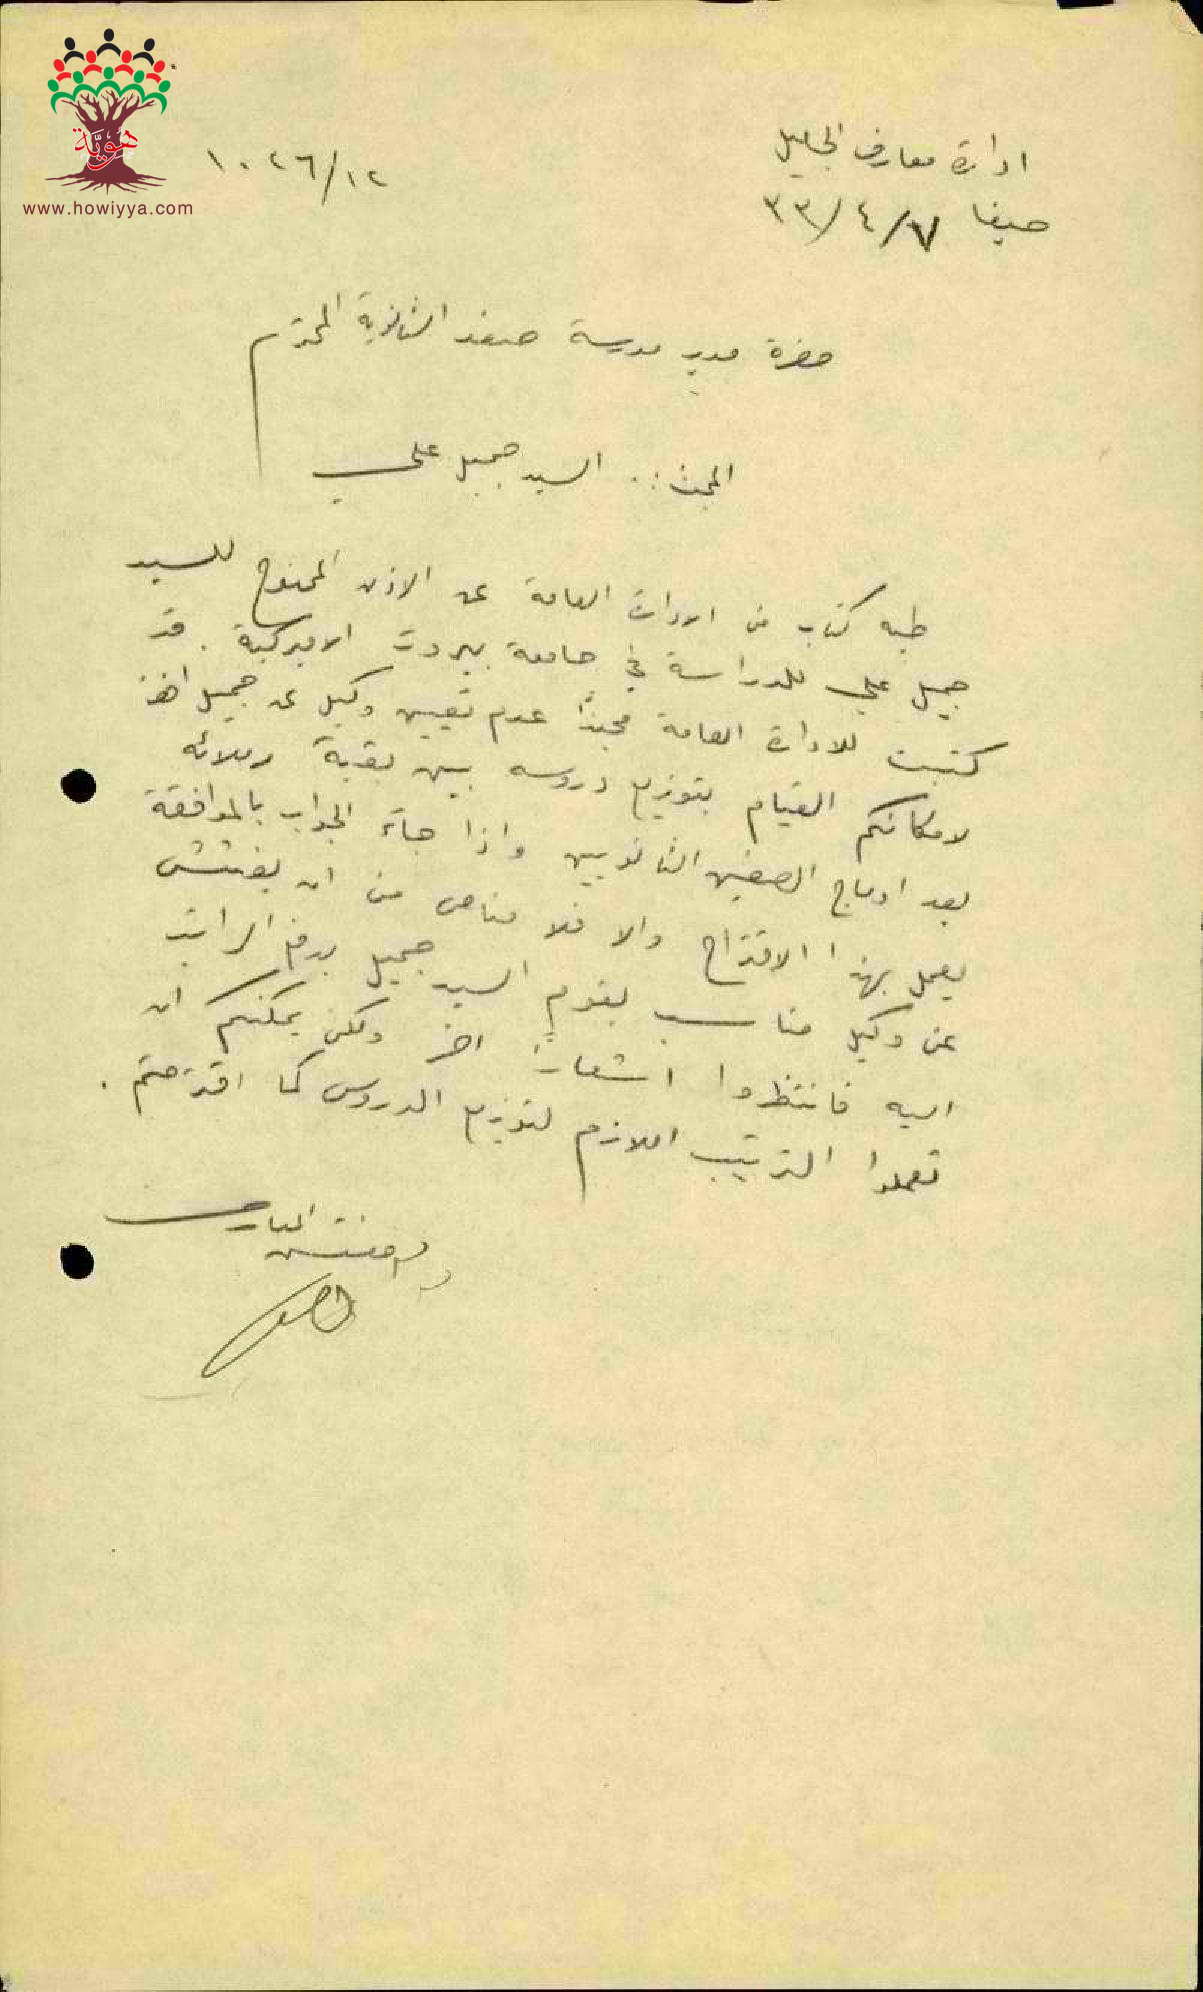 هوية
www.howiyya.com
ادارة معارف الجليل
حيفا ٧/٤/٣٣
١٠٢٦/١٢
حضرة مدير مدرسة صفد الثانوية المحترم
المبحث :. السيد جميل علي
طيه كتاب من الادارة العامة عن الاذن الممنوح للسيد
جميل علي للدراسة في جامعة بيروت الاميركية. قد
كتبت للادارة العامة محبذاً عدم تعيين وكيل عن جميل افندي
لامكانكم القيام بتوزيع دروسه بين بقية زملائه
بعد ادماج الصفين الثانويين واذا جاء الجواب بالموافقة
يعمل بهذا الاقتراح والا فلا مناص من ان يفتش
عن وكيل مناسب يقوم السيد جميل بدفع الراتب
اليه فانتظروا اشعارا اخر ولكن يمكنكم ان
تعملوا الترتيب اللازم لتوزيع الدروس كما اقترحتم.
مفتش المعارف